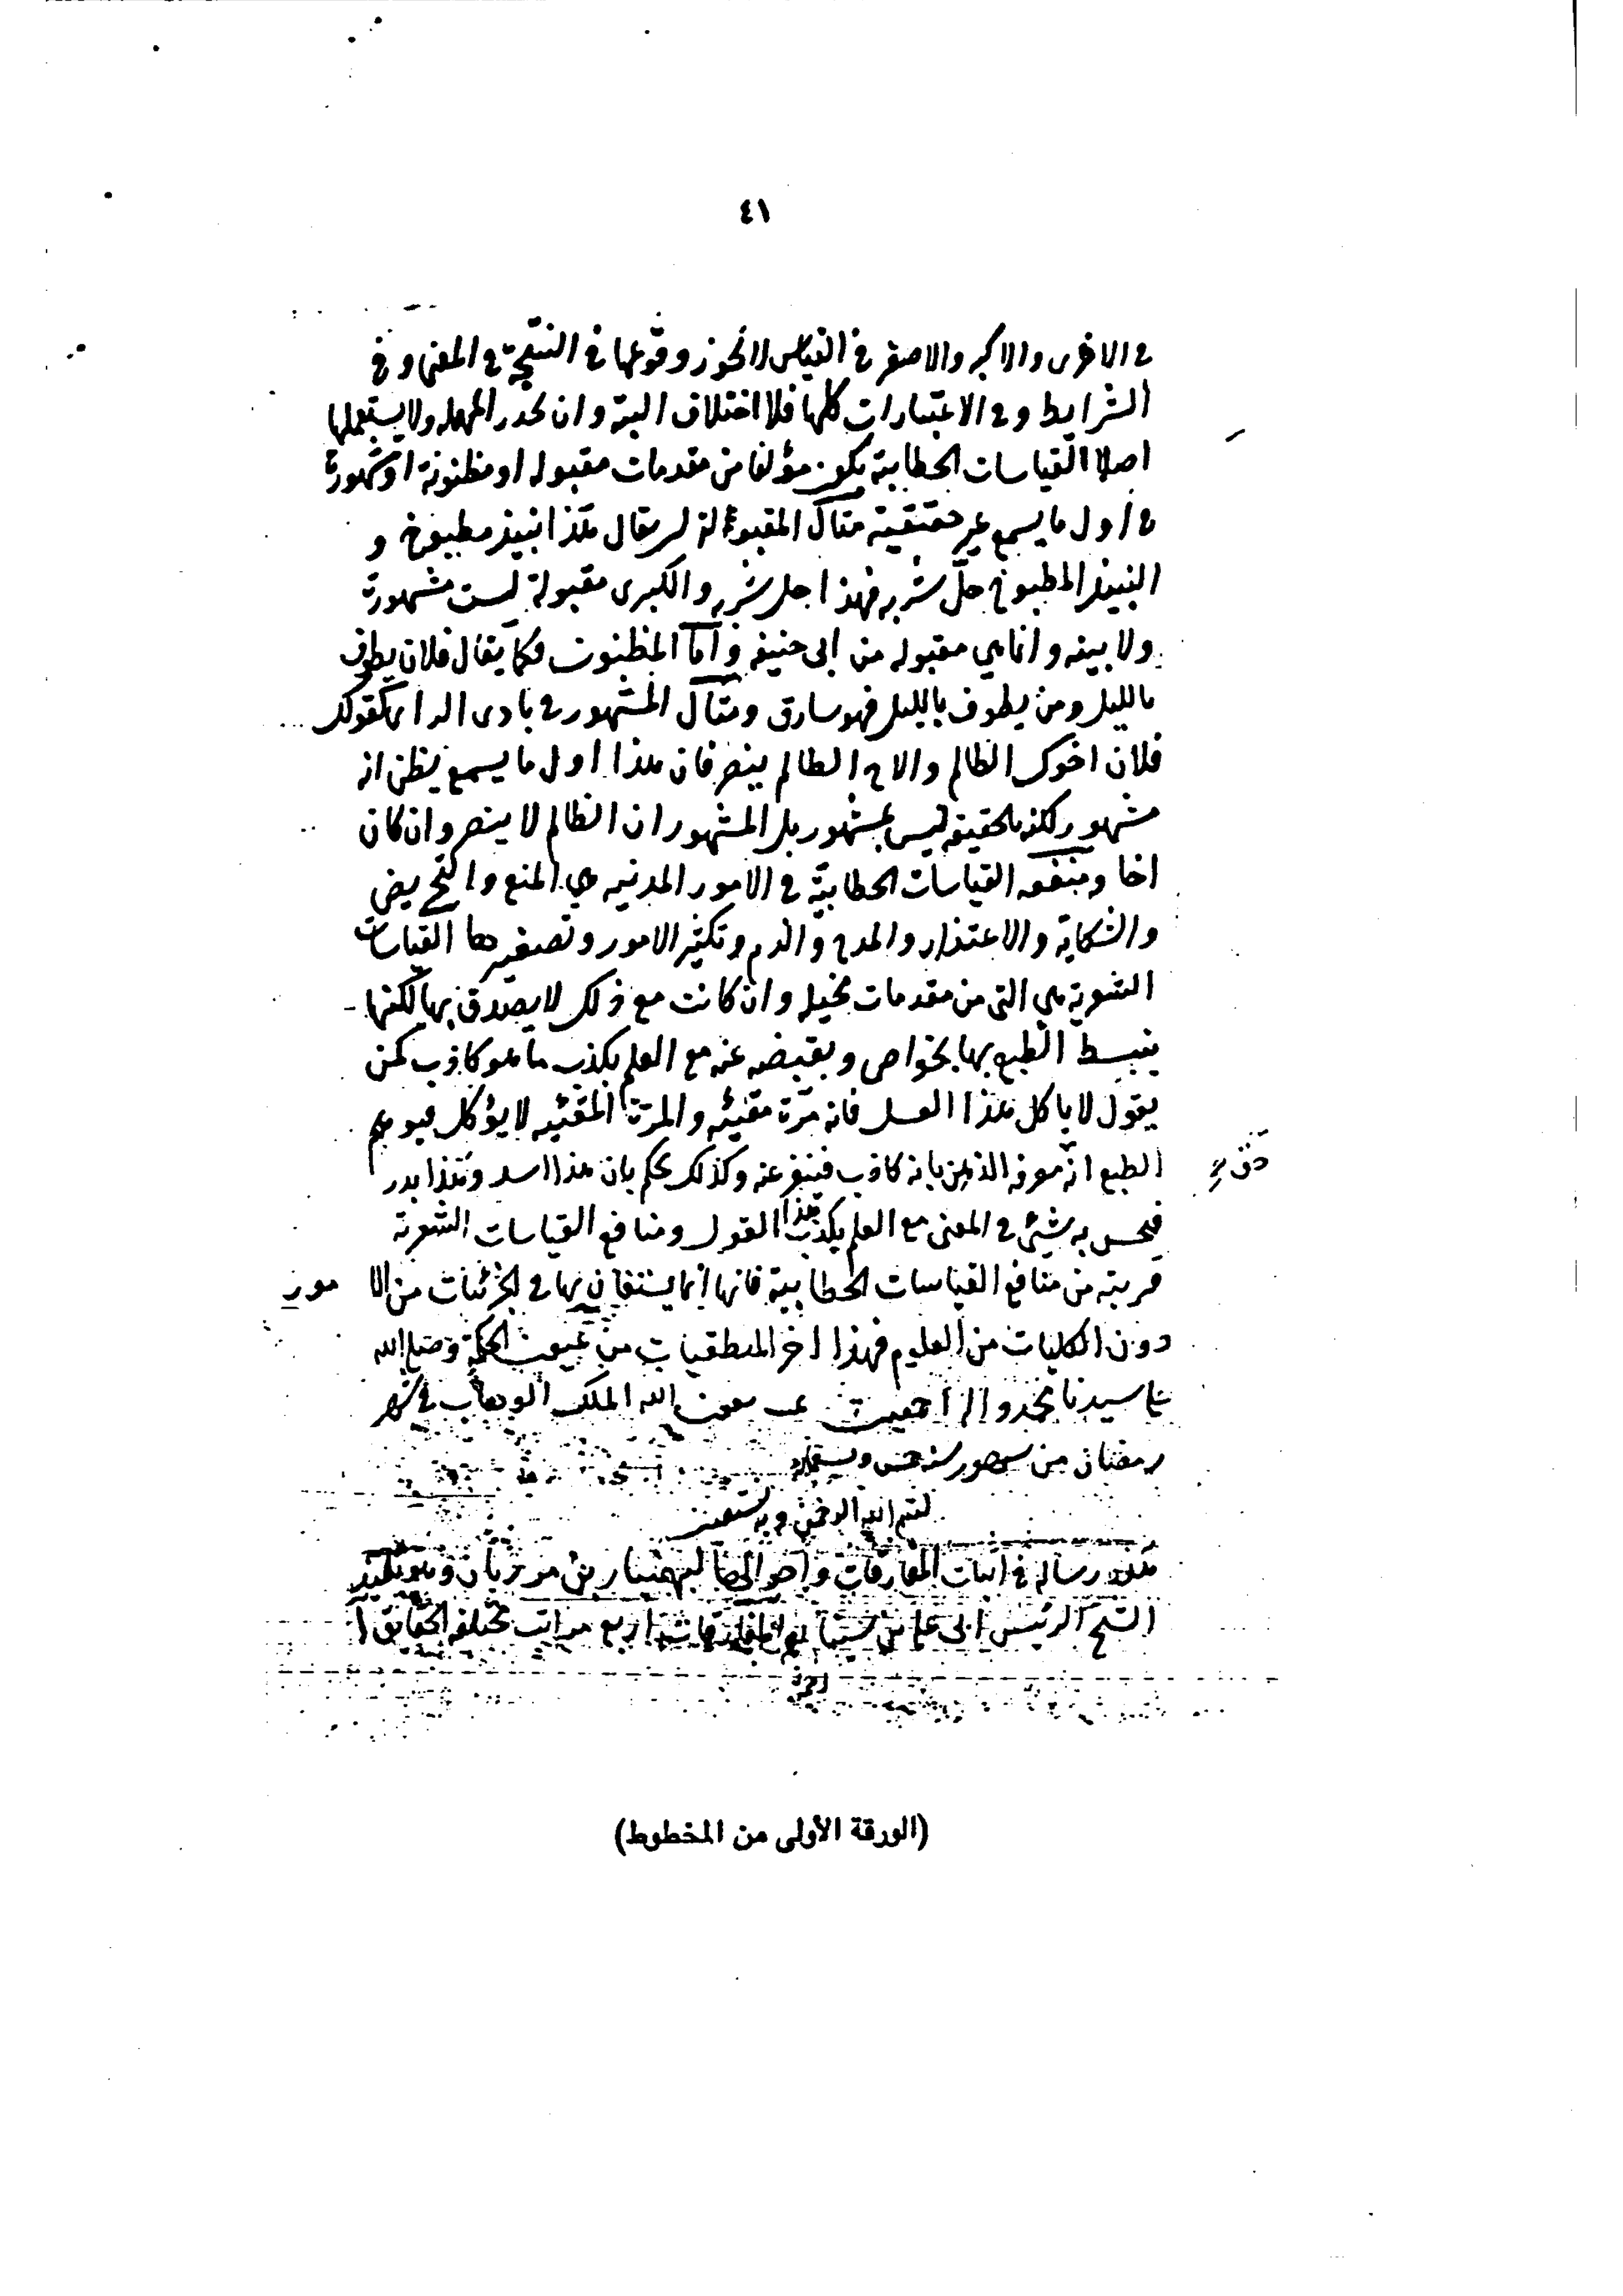 ٤١
في الاخرى والاكبر والاصغر في القياس لا نحوز وقوعها في النتيجة في المعنى وفي
الشرايط وفي الاعتبارات كلها فلا اختلاف البتة وان تحذر المهمله ولا يستعملها
اصلا القياسات الخطابية يكون مؤلفا من مقدمات مقبوله او مظنونة او مشهورة
في اول ما يسمع غير حقيقية مثال المقبولة يقال هذا نبيذ مطبوخ و
النبيذ المطبوخ حل شربه فهذا حل شربه والكبرى مقبولة ليست مشهورة
ولا بينه وانما هي مقبوله من ابى حنيفه واما المظنونت فكما يقال فلان يطوف
بالليل ومن يطوف بالليل فهو سارق ومثال المشهور في بادى الراى كقولك
فلان اخوك الظالم والاخ الظالم ينصر فان هذا اول ما يسمع يظن انه
مشهور لكنه بالحقيقه ليس بمشهور بل المشهور ان الظالم لا ينصر وان كان
اخا ومنفعه القياسات الخطابية في الامور المدنيه هي المنع والتحريض
والشكاية والاعتذار والمدح والذم وتكثير الامور وتصغيرها القياسات
الشعرية هي التى من مقدمات مخيله وان كانت مع ذلك لا يصدق بها لكنها
يبسط الطبع بها بخواص ويقبضه عنه مع العلم بكذب ما هو كاذب كمن
يقول لا ياكل هذا العسل فانه مرة مقيئه والمرة المقيئه لا يؤكل فيوهم
الطبع انه معرفه الذهن بانه كاذب فينفر عنه وكذلك يحكم بان هذا اسد وهذا بدر
فيحس به شيئ في المعنى مع العلم بكذب هذا القول ومنافع القياسات الشعرية
قريبة من منافع القياسات الخطابية فانها انما يستعان بها في الجزئيات من الامور
دون الكليات من العلوم فهذا اخر المنطقيات من عيون الحكمة وصلى الله
على سيدنا محمد واله اجمعين بعون الله الملك الوهاب في شهر
رمضان من شهور سنه خمس
بسم الله الرحمن وبه نستعين
هذه رسالة في اثبات المفارقات واحوالها لبهمنيار بن مرزبان وهو تلميذ
الشيخ الرئيس ابى على بن سينا المفارقات اربع مراتب مختلفة الحقايق ا
(الورقة الأولى من المخطوط)